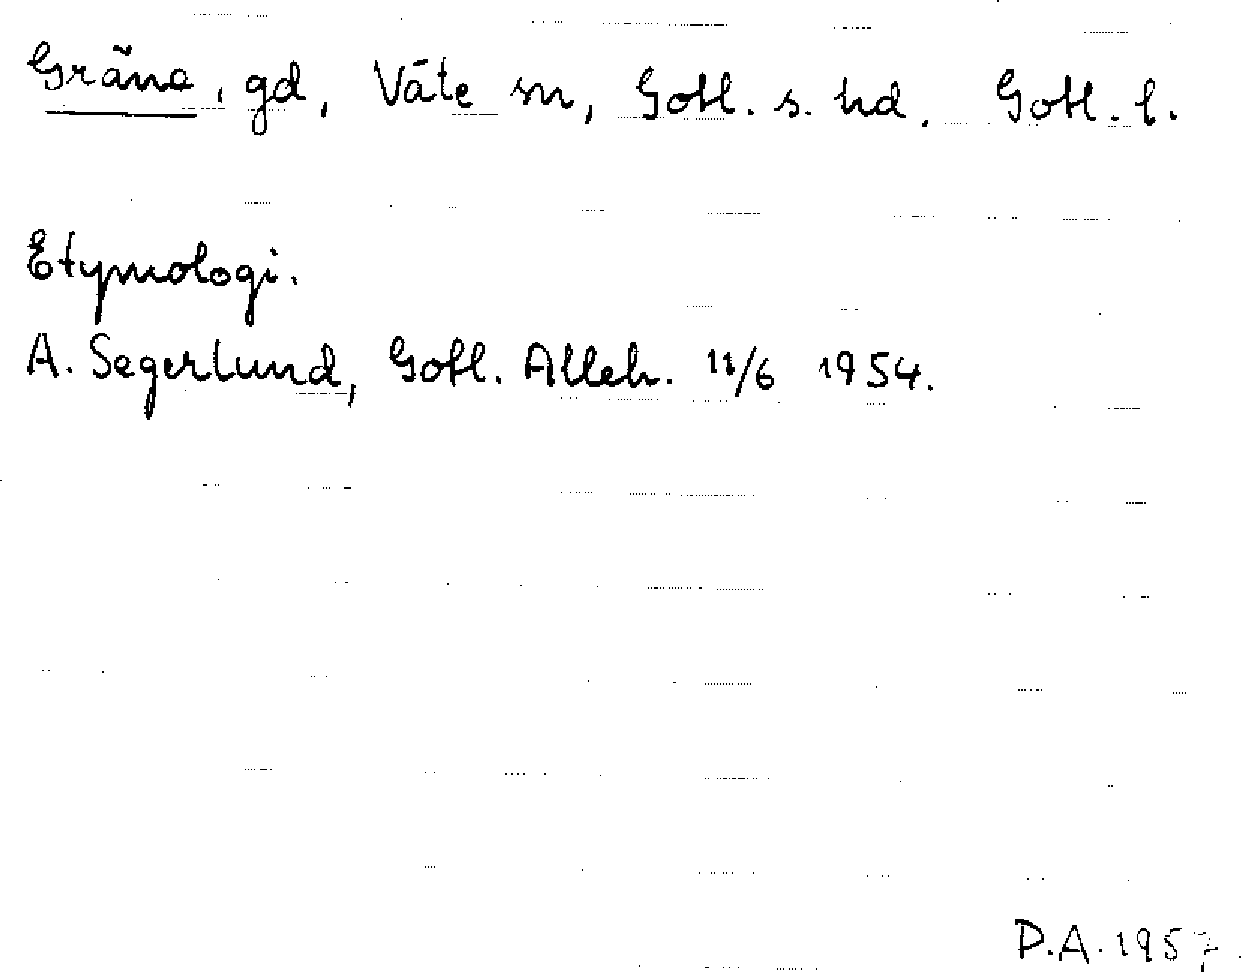 Gräne, gd, Väte sn, Gotl. s. hd, Gotl. l.
Etymologi.
A. Segerlund, Gotl. Alleh. 11/6 1954.
P.A. 1957.